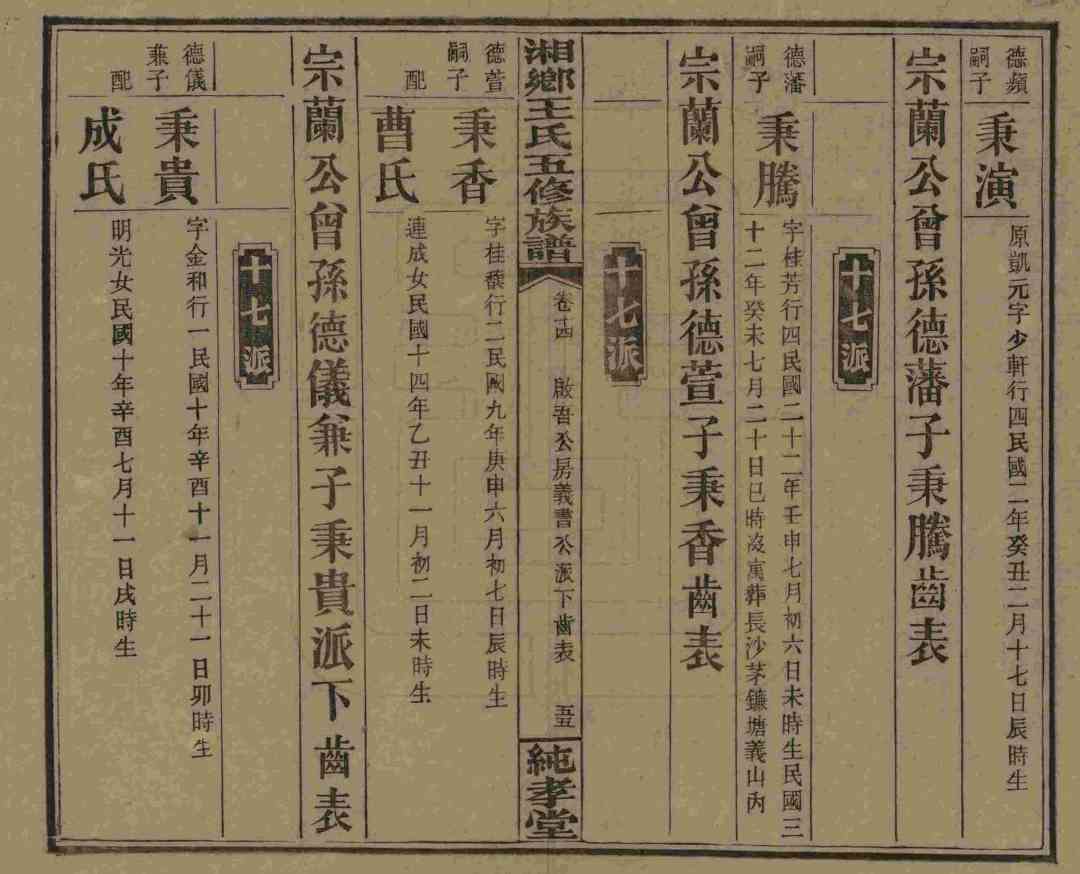 德蘋
嗣子
秉演
原凱元字少軒行四民國二年癸丑二月十七日辰時生
宗蘭公曾孫德藩子秉騰齒表
十七派
德藩
嗣子
秉騰
字桂芳行四民國二十二年壬申七月初六日未時生民國三
十二年癸未七月二十日巳時歿寓葬長沙茅鐮塘義山內
宗蘭公曾孫德萱子秉香齒表
十七派
湘鄉王氏五修族譜
卷十四
啟吾公房義書公派下齒表
五五
純孝堂
德萱
嗣子
秉香
字桂馥行二民國九年庚申六月初七日辰時生
配
曹氏
連成女民國十四年乙丑十一月初二日未時生
宗蘭公曾孫德儀兼子秉貴派下齒表
十七派
德儀
兼子
秉貴
字金和行一民國十年辛酉十一月二十一日卯時生
配
成氏
明光女民國十年辛酉七月十一日戌時生